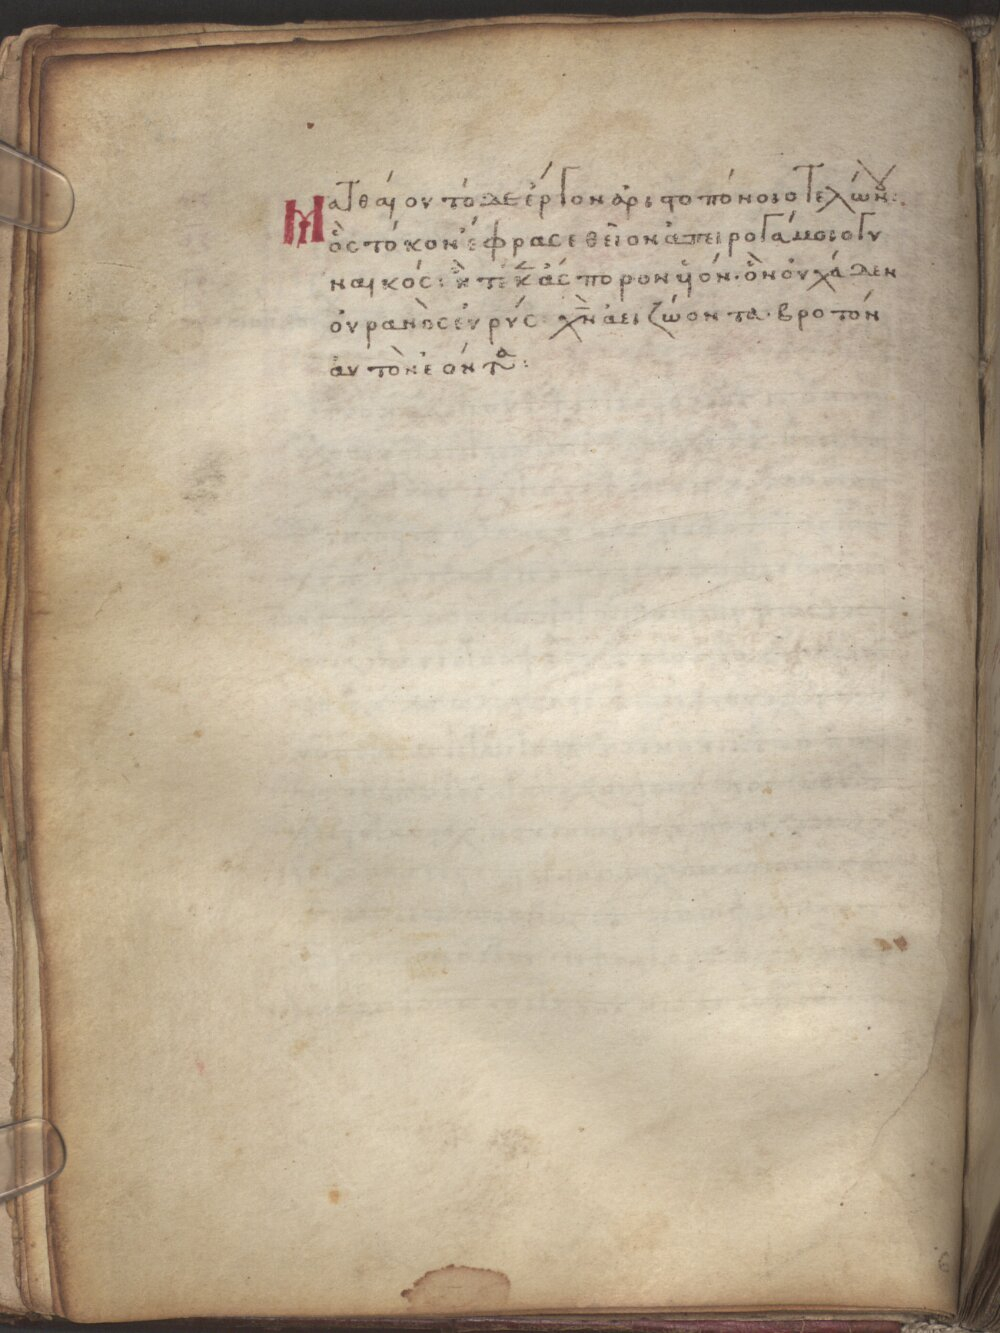 Ματθαίου τόδε ἔργον ἀριστοπόνοιο τελώνου:
ὃς τόκον ἔφρασε θεῖον ἀπειρογάμοιο γυ
ναικός: ἣ τέκ ἄσπορον υἱόν· ὃν οὐ χάδεν
οὐρανὸς εὐρύς· χν ἀεὶ ζώοντα· βροτόν
αὐτὸν ἐόντα: